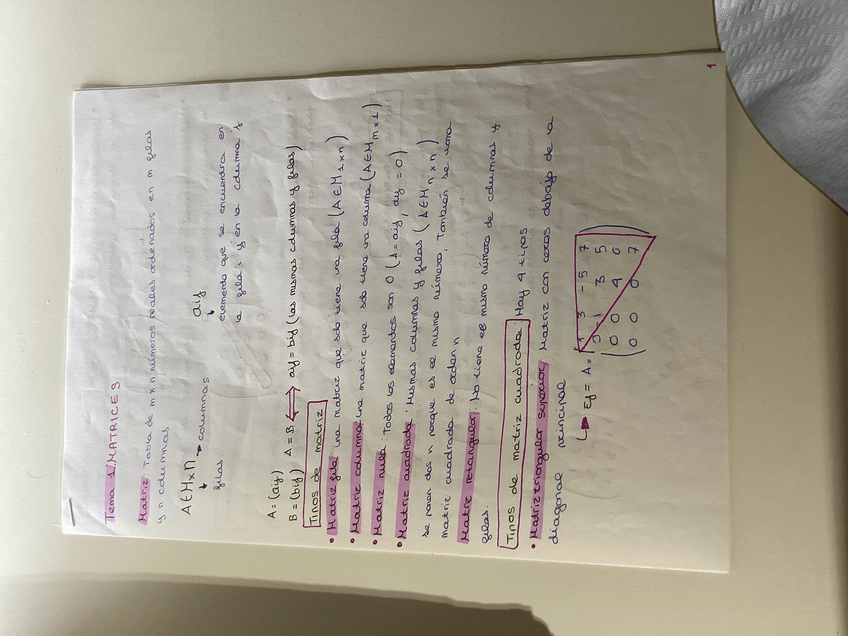 Tema 1. MATRICES
Matriz: Tabla de m x n números reales ordenados en m filas
y n columnas
A∈M x n → columnas
filas
aij
elemento que se encuentra en
la fila i y en la columna j
A = (aij)
B = (bij) A = B ⟺ aij = bij (las mismas columnas y filas)
Tipos de matriz
• Matriz fila: una matriz que solo tiene una fila (A∈M1 x n)
• Matriz columna: una matriz que solo tiene una columna (A∈Mm x 1)
• Matriz nula: Todos los elementos son 0 (A = aij, aij = 0)
• Matriz cuadrada: Mismas columnas y filas (A∈M n x n)
se ponen dos n porque es el mismo número. También se llama
matriz cuadrada de orden n
Matriz rectangular: No tiene el mismo número de columnas y
filas.
Tipos de matriz cuadrada: Hay 4 tipos
• Matriz triangular superior: Matriz con ceros debajo de la
diagonal principal
↳ Ej = A =
1 3 -5 7
0 1 3 5
0 0 4 0
0 0 0 7
1